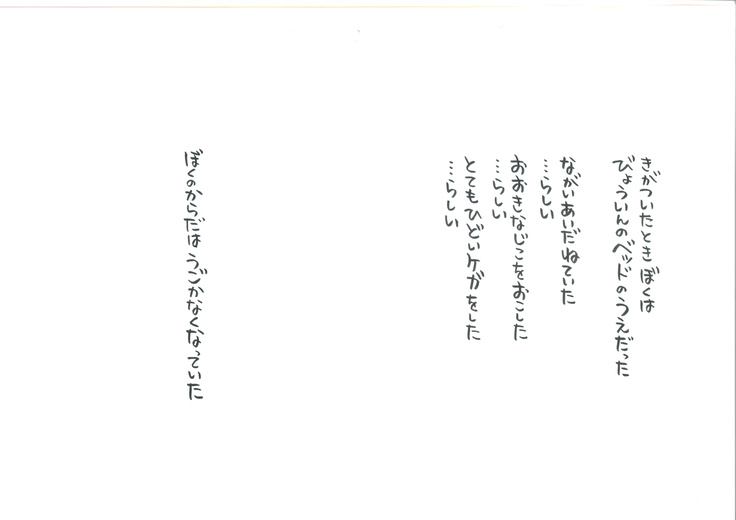 きがついたとき ぼくは
びょういんのベッドのうえだった
ながいあいだ ねていた
…らしい
おおきなじこをおこした
…らしい
とてもひどいケガをした
…らしい
ぼくのからだは うごかなくなっていた